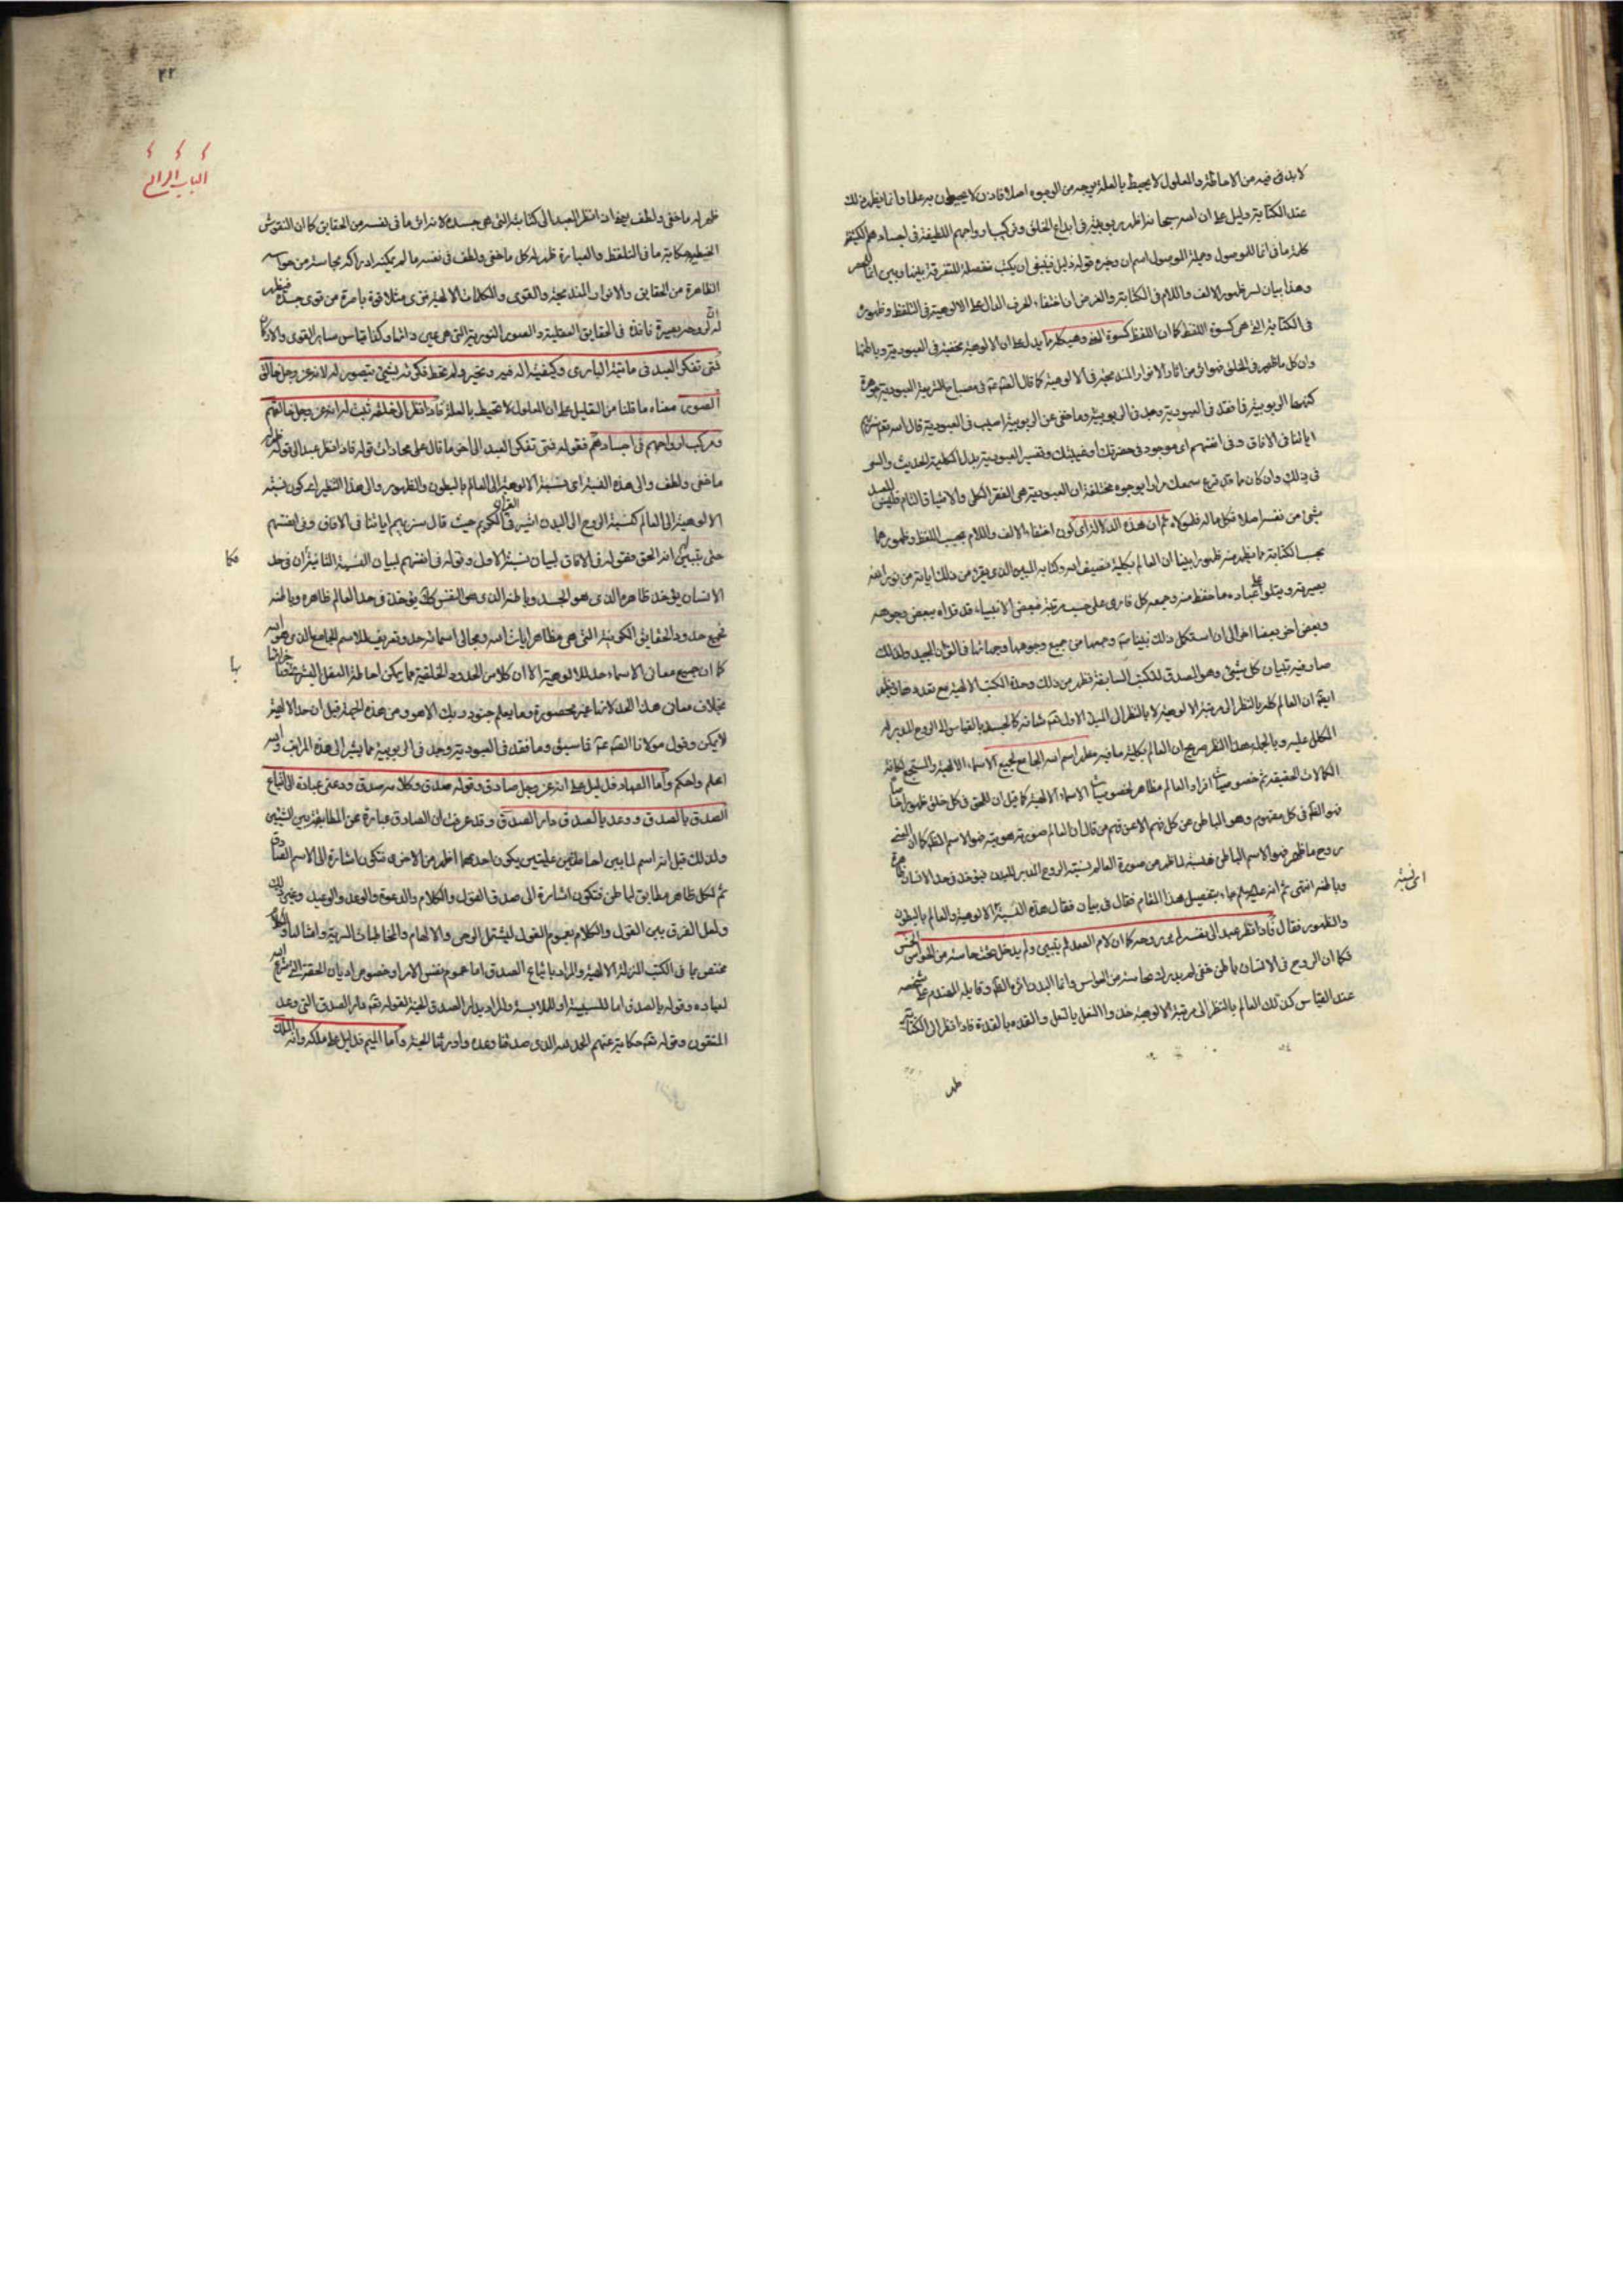 لا بد فى فيه من الاحاطة والمعلول لا يحيط بالعلة بوجه من الوجوه اصلا فاذن لا يحيطون به علما وانما يظهر ذلك
عند الكتابة دليل على ان الله سبحانه اظهر ربوبيته فى ابداع الخلق وتركيب ارواحهم اللطيفة فى اجسادهم الكثيفة
كلمة ما فى انما للموصول وجملة الموصول اسم ان وخبره قوله دليل فينبغى ان يكتب منفصلة للتفرقة بينها وبين انما الحصر
وهذا بيان لسر ظهور الالف واللام فى الكتابة والغرض ان اختفاء الحرف الدال على الالوهية فى التلفظ وظهوره
فى الكتابة التى هى كسوة اللفظ كما ان اللفظ كسوة المعنى وهيكله مما يدل على ان الالوهية مختفية فى العبودية وباطنها
وان كل ما ظهر فى الخلق فهو انما من اثار الانوار المندمجة فى الالوهية كما قال الصادق فى مصباح الشريعة العبودية جوهرة
كنهها الربوبية فما فقد فى العبودية وجد فى الربوبية وما خفى عن الربوبية اصيب فى العبودية قال الله تعالى سنريهم
اياتنا فى الافاق وفى انفسهم اى موجود فى حضرتك وغيبتك وتفسير العبودية بذل الكلية الحديث والسر
فى ذلك وان كان مما قد قرع سمعك مرارا بوجوه مختلفة ان العبودية هى الفقر الكلى والاحتياج التام فليس للعبد
شىء من نفسه اصلا فكل ما له فلمولاه ثم ان هذه الدلالة اى كون اختفاء الالف واللام بحسب اللفظ وظهورهما
بحسب الكتابة مما يظهر منه ظهورا بينا ان العالم بكليته تصنيف الله وكتابه المبين الذى يقرأ من ذلك اياته من نور الله
بصيرته ويتلو على عباده ما حفظ منه وجمعه كل قارى على حسب مرتبته فبعض الانبياء قد قراه ببعض وجوهه
وبعض اخر بعضا اخر الى ان استكمل ذلك نبينا وجمعها من جميع وجوهها وجهاتها فى القران المجيد ولذلك
صار فيه تبيان كل شىء وهو المصدق للكتب السابقة فظهر من ذلك وحدة الكتب الالهية مع تعددها وظهر
ايضا ان العالم كله بالنظر الى مرتبة الالوهية لا بالنظر الى المبدا الاول تعالى شانه كالجسد بالقياس الى الروح المدبر له
المكلل عليه وبالجملة هذا النظر صريح ان العالم بكليته ما فيه مظهر اسم الله الجامع لجميع الاسماء الالهية والمستجمع لكافة
الكمالات الحقيقية ثم خصوصيات افراد العالم مظاهر لخصوصيات الاسماء الالهية كما قيل ان للحق فى كل خلق ظهورا خاصا
فهو الظاهر فى كل مفهوم وهو الباطن عن كل فهم الا عن فهم من قال ان العالم صورته وهويته فهو الاسم الظاهر كما ان المعنى
روح ما ظهر فهو الاسم الباطن فنسبته لما ظهر من صورة العالم نسبة الروح المدبر للبدن فيؤخذ فى حد الانسان ظاهره
وباطنه انتهى ثم انه عليه السلم جاء بتفصيل هذا المقام فقال فى بيان فقال هذه النسبة الالوهية والعالم بالبطون
والظهور فقال فاذا نظر عبد الى نفسه لم ير روحه كما ان لام الصمد لم يتبين ولم يدخل تحت حاسة من الحواس الخمس
فكما ان الروح فى الانسان باطن خفى لم يدرك بحاسة من الحواس وانما البدن
عند القياس كذلك العالم بالنظر الى مرتبة الالوهية فاذا نظر الى الكتابة
ظهر
اى نسبة
٢٢
الباب الرابع
ظهر له ما خفى ولطف يعنى اذا نظر العبد الى كتابته التى هى جسده لانه اثر ما فى نفسه من الحقايق كما ان النقوش
الخطية حكاية ما فى التلفظ والعبارة ظهر له كل ما خفى ولطف فى نفسه ما لم يمكنه ادراكه بحاسة من حواسه
الظاهرة من الحقايق والانوار المندمجة والقوى والكلمات الالهية فترى مثلا قوة باصرة من قوى جسده فيظهر
له ان لروحه بصيرة نافذة فى الحقايق العقلية والصور النورية التى هى عين ذاتها وكذا قياس ساير القوى والاركان
فمتى تفكر العبد فى مائية البارى وكيفيته اله فيه وتحير ولم تحط فكرته بشىء يتصور له لانه عز وجل خالق
الصور معناه ما قلنا من التقليل على ان المعلول لا تحيط بالعلة فاذا نظر الى خلقه ثبت له انه عز وجل خالقهم
ومركب ارواحهم فى اجسادهم فقوله فمتى تفكر العبد الى اخر ما قال على محاذات قوله فاذا نظر عبد الى قوله ظهر له
ما خفى ولطف والى هذه النسبة اى نسبة الالوهية الى العالم بالبطون والظهور والى هذا التنظير اى كون نسبة
الالوهية الى العالم كنسبة الروح الى البدن اشير فى القران الكريم حيث قال سنريهم اياتنا فى الافاق وفى انفسهم
حتى يتبين لهم انه الحق فقوله فى الافاق لبيان نسبة الاول وقوله فى انفسهم لبيان النسبة الثانية ان فى حد
الانسان يؤخذ ظاهره الذى هو الجسد وباطنه الذى هو النفس كذلك يؤخذ فى حد العالم ظاهره وباطنه
فجميع حدود الحقايق الكونية التى هى مظاهر ايات الله ومجالى اسمائه حد وتعريف للاسم الجامع الذى هو الله
كما ان جميع معانى الاسماء حد للالوهية الا ان كلا من الحدود الخلقية مما يمكن احاطة العقل البشرى خواصها
بخلاف معانى هذا الحد لانها غير محصورة وما يعلم جنود ربك الا هو ومن هذه الجهة قيل ان حد الالهية
لا يمكن وقول مولانا الصادق فاسبق وما فقد فى العبودية وجد فى الربوبية مما يشير الى هذه المراتب والله
اعلم واحكم واما الصاد فدليل على انه عز وجل صادق وقوله صدق وكلامه صدق ودعى عباده الى اتباع
الصدق بالصدق ووعد بالصدق دار الصدق وقد عرفت ان الصادق عبارة عن المطابقة بين الشيئين
ولذلك قيل انه اسم لما بين احاطتين علميتين يكون احدهما اظهر من الاخرى فتكون اشارة الى الاسم الصادق
ثم لكل ظاهر مطابق لباطن فتكون اشارة الى صدق القول والكلام والدعوة والوعد والوعيد وغير ذلك
ولعل الفرق بين القول والكلام بعموم القول ليشتمل الوحى والالهام والمخاطبات السرية وامثالها والكلام
مختص بما فى الكتب المنزلة الالهية والمراد باتباع الصدق اما عموم نفس الامر او خصوص اديان الحقة التى شرع الله
لعباده وقوله بالصدق اما للسببية او للملابسة والمراد بدار الصدق الجنة لقوله تعالى دار الصدق التى وعد
المتقون وقوله تعالى حكاية عنهم الحمد لله الذى صدقنا وعده واورثنا الجنة واما الميم فدليل على ملكه وانه الملك